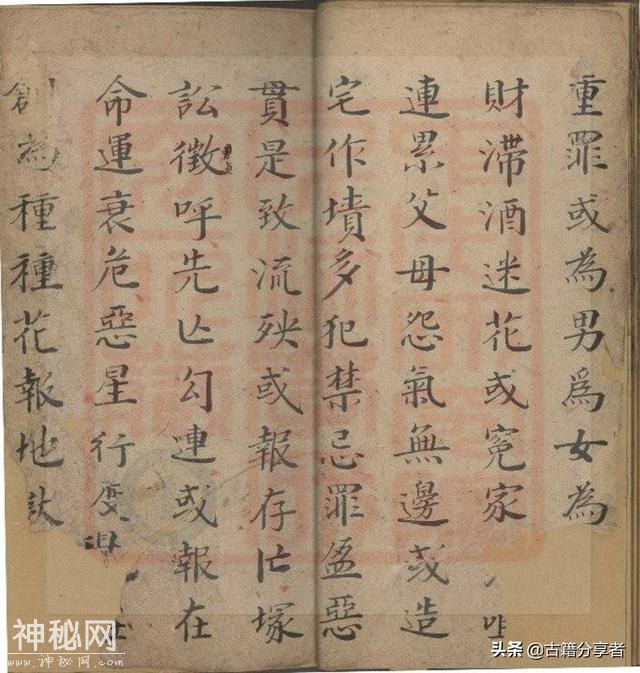 重罪或為男爲女為
財滯酒迷花或冤家
連累父母怨氣無邊或造
宅作墳多犯禁忌罪盈惡
貫是致流殃或報存亡塚
訟徵呼先亡勾連或報在
命運衰危惡星行度
種種花報地獄
神秘网
www.神秘网.com
头条 @古籍分享者